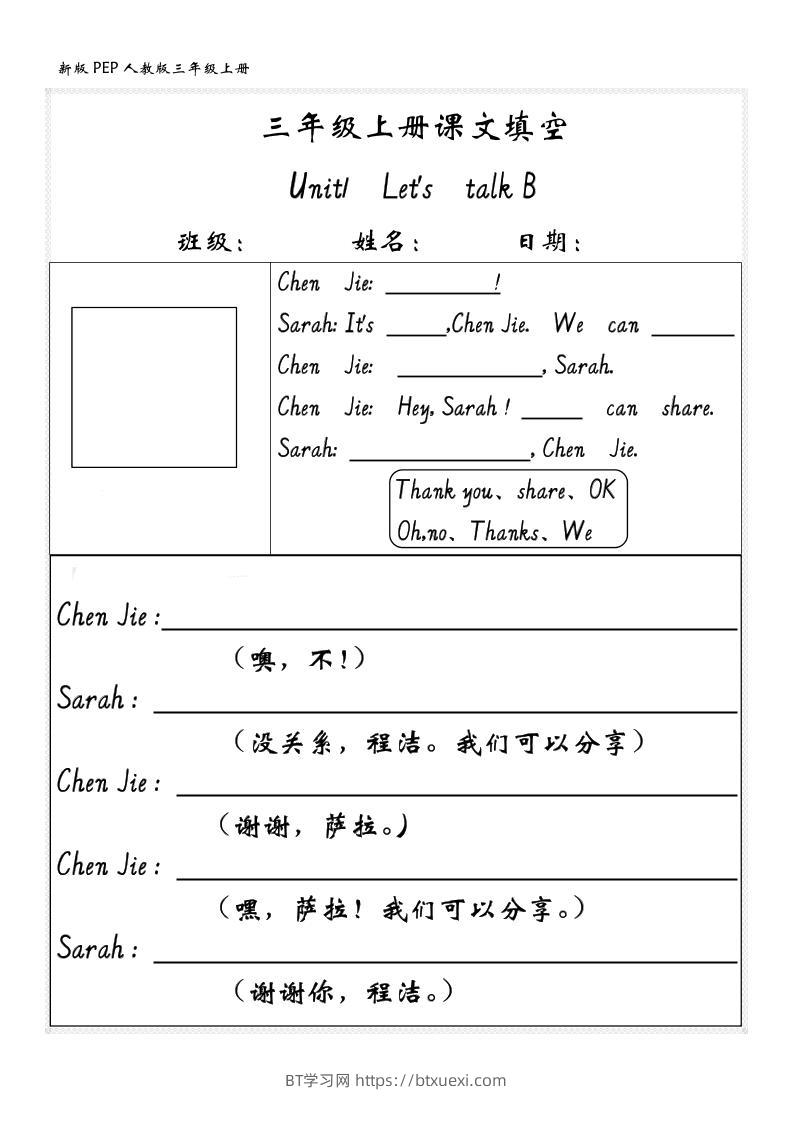 新版 PEP 人教版三年级上册
三年级上册课文填空
Unit1 Let's talk B
班级： 姓名： 日期：
Chen Jie: __________!
Sarah: It's _____,Chen Jie. We can _______
Chen Jie: ____________, Sarah.
Chen Jie: Hey, Sarah! _____ can share.
Sarah: _______________, Chen Jie.
Thank you、share、OK
Oh,no、Thanks、We
Chen Jie:
（噢，不！）
Sarah:
（没关系，程洁。我们可以分享）
Chen Jie:
（谢谢，萨拉。）
Chen Jie:
（嘿，萨拉！我们可以分享。）
Sarah:
（谢谢你，程洁。）
BT学习网 https://btxuexi.com